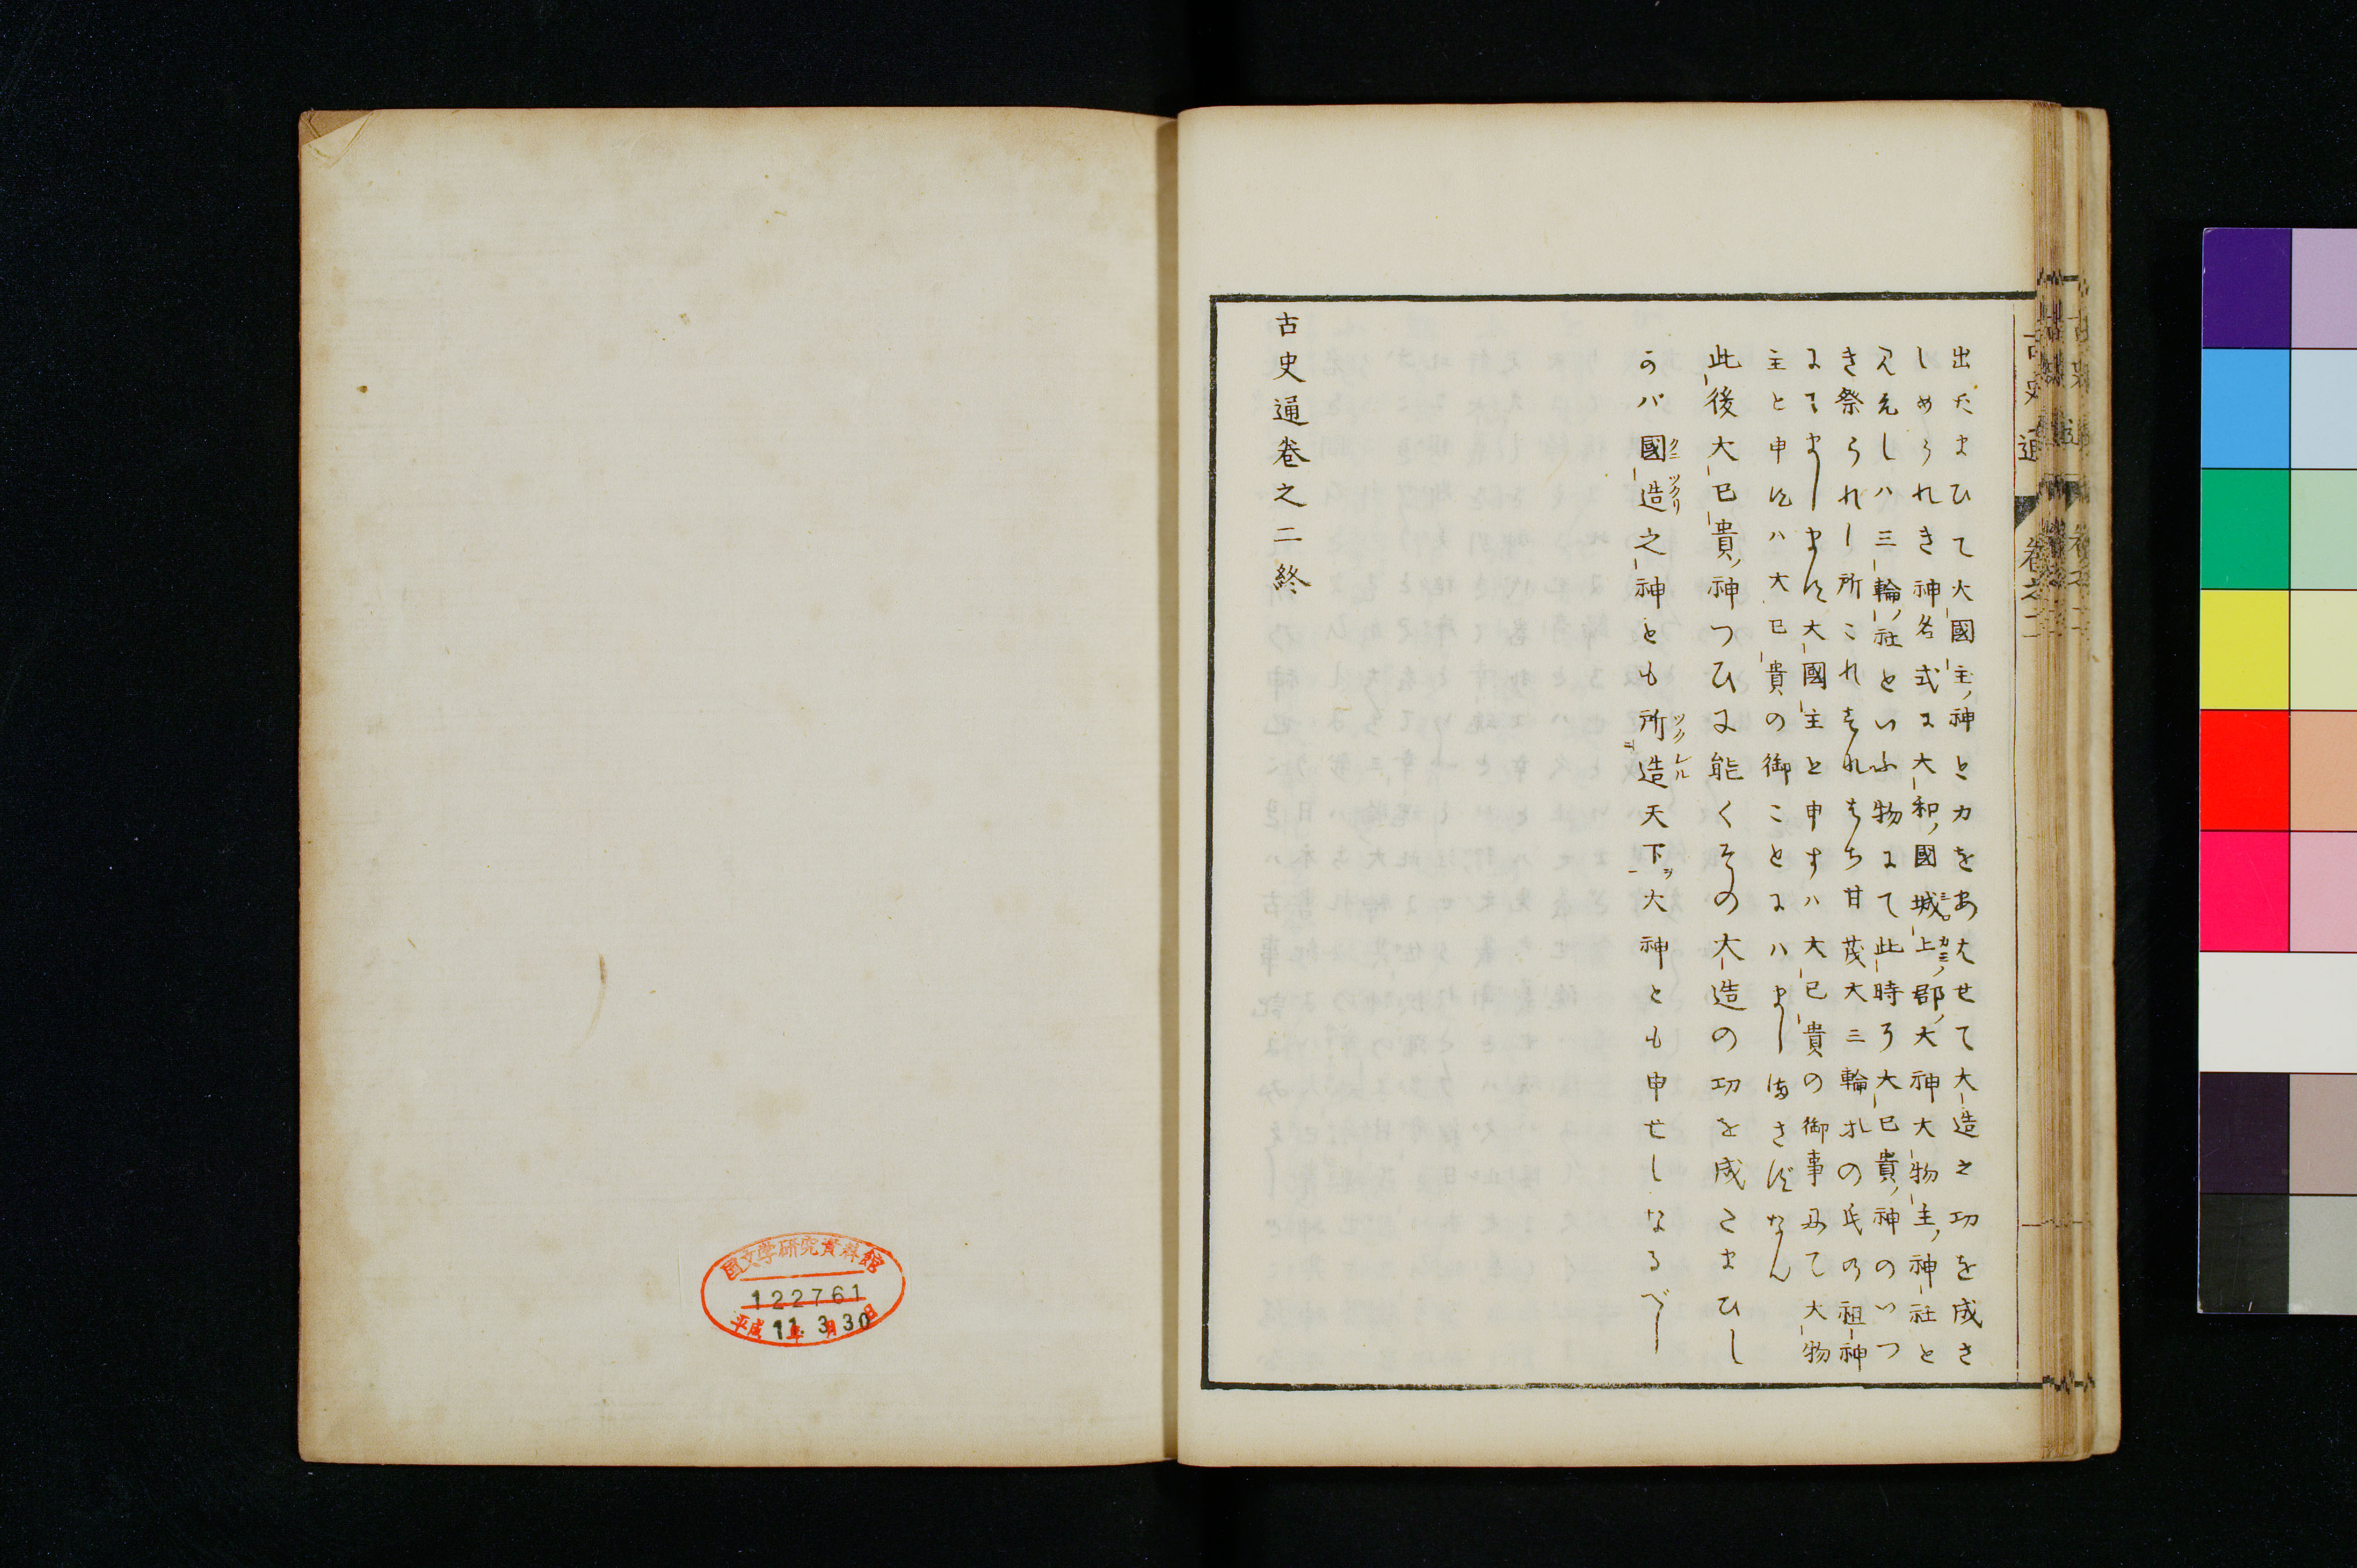 出たまひて大國主ノ神と力をあはせて大造之功を成さ
しめられき神名式に大和ノ國城上ノ郡ノ大神大物主ノ神社と
見えしハ三輪ノ社といふ物にて此時に大己貴ノ神のいつ
き祭られし所これすなはち甘茂大三輪ホの氏の祖神
にてましますに大國主と申すハ大己貴の御事にて大物
主と申にハ大己貴の御ことにハましまさずなん
此後大己貴ノ神つひに能くその大造の功を成たまひし
かバ國造之神とも所造天下大神とも申せしなるべし
古史通巻之二終
古史通 巻之二
国文学研究資料館
122761
平成11年3月30日